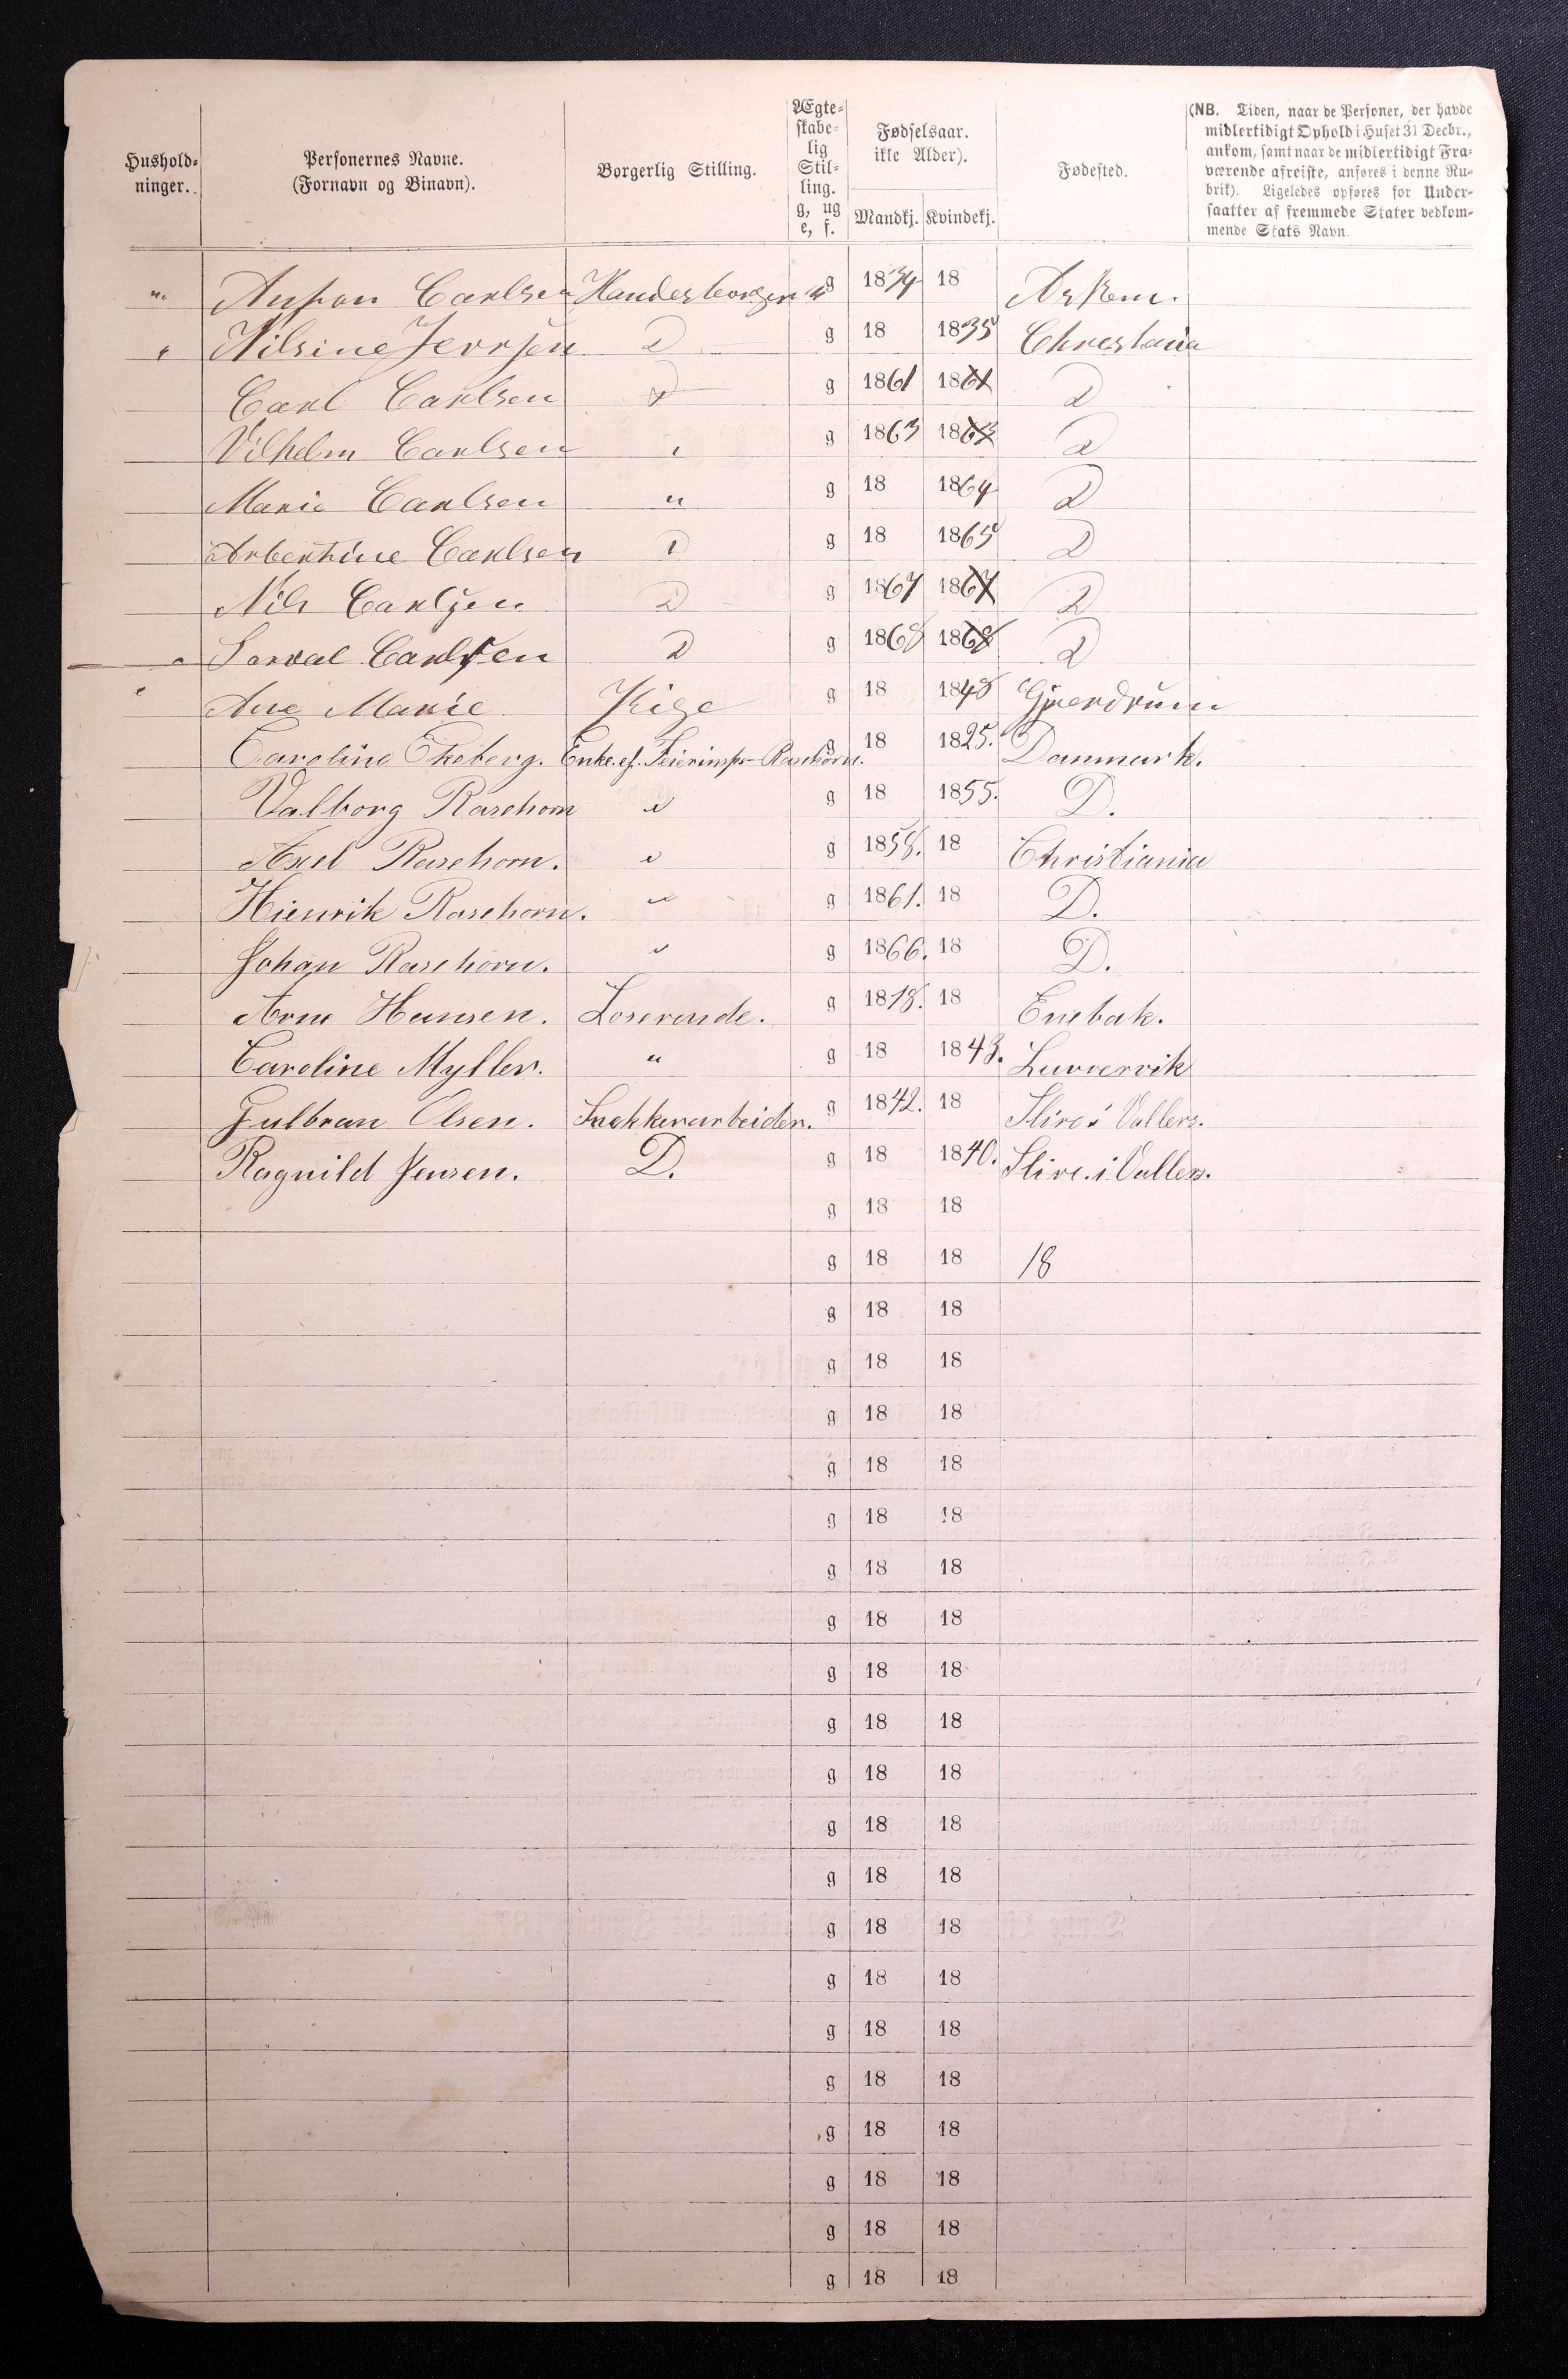 Hushold-ninger. Personernes Navne. (Fornavn og Binavn). Borgerlig Stilling. Ægte-skabe-lig Stil-ling. g, ug e, f. Fødselsaar. ikke Alder). Mandkj. Kvindekj. Fødested. (NB. Tiden, naar de Personer, der havde midlertidigt Ophold i Huset 31 Decbr., ankom, samt naar de midlertidigt Fra-værende afreiste, anføres i denne Ru-brik). Ligeledes opføres for Under-saatter af fremmede Stater vedkom-mende Stats Navn.
" Carlsen Handesborger g 1834 18 Askem.
" Nilsine Jenssen D g 18 1835 Christania
Carl Carlsen D g 1861 1861 D
Vilhelm Carlsen " g 1863 1863 D
Marie Carlsen " g 18 1864 D
Arbertine Carlsen D g 18 1865 D
Nils Carlsen D g 1867 1867 D
Carlsen D g 1868 1868 D
" Ane Marie Pige g 18 1848 Gjerdrum
Caroline Ekeberg. Enke. ef. Feierinsp. Rasehorn. g 18 1825. Danmark.
Valborg Rasehorn " g 18 1855. D.
Axel Rasehorn. " g 1858. 18 Christiania
Hienrik Rasehorn. " g 1861. 18 D.
Johan Rasehorn. " g 1866. 18 D.
Arne Hansen. Loserende. g 1818. 18 Enebak.
Caroline Myller. " g 18 1843. Laurvervik
Gulbran Olsen. Snekkerarbeider. g 1842. 18 Slire i Vallers.
Ragnild Jensen. D. g 18 1840. Slire. i Vallers.
g 18 18
g 18 18 18
g 18 18
g 18 18
g 18 18
g 18 18
g 18 18
g 18 18
g 18 18
g 18 18
g 18 18
g 18 18
g 18 18
g 18 18
g 18 18
g 18 18
g 18 18
g 18 18
g 18 18
g 18 18
g 18 18
g 18 18